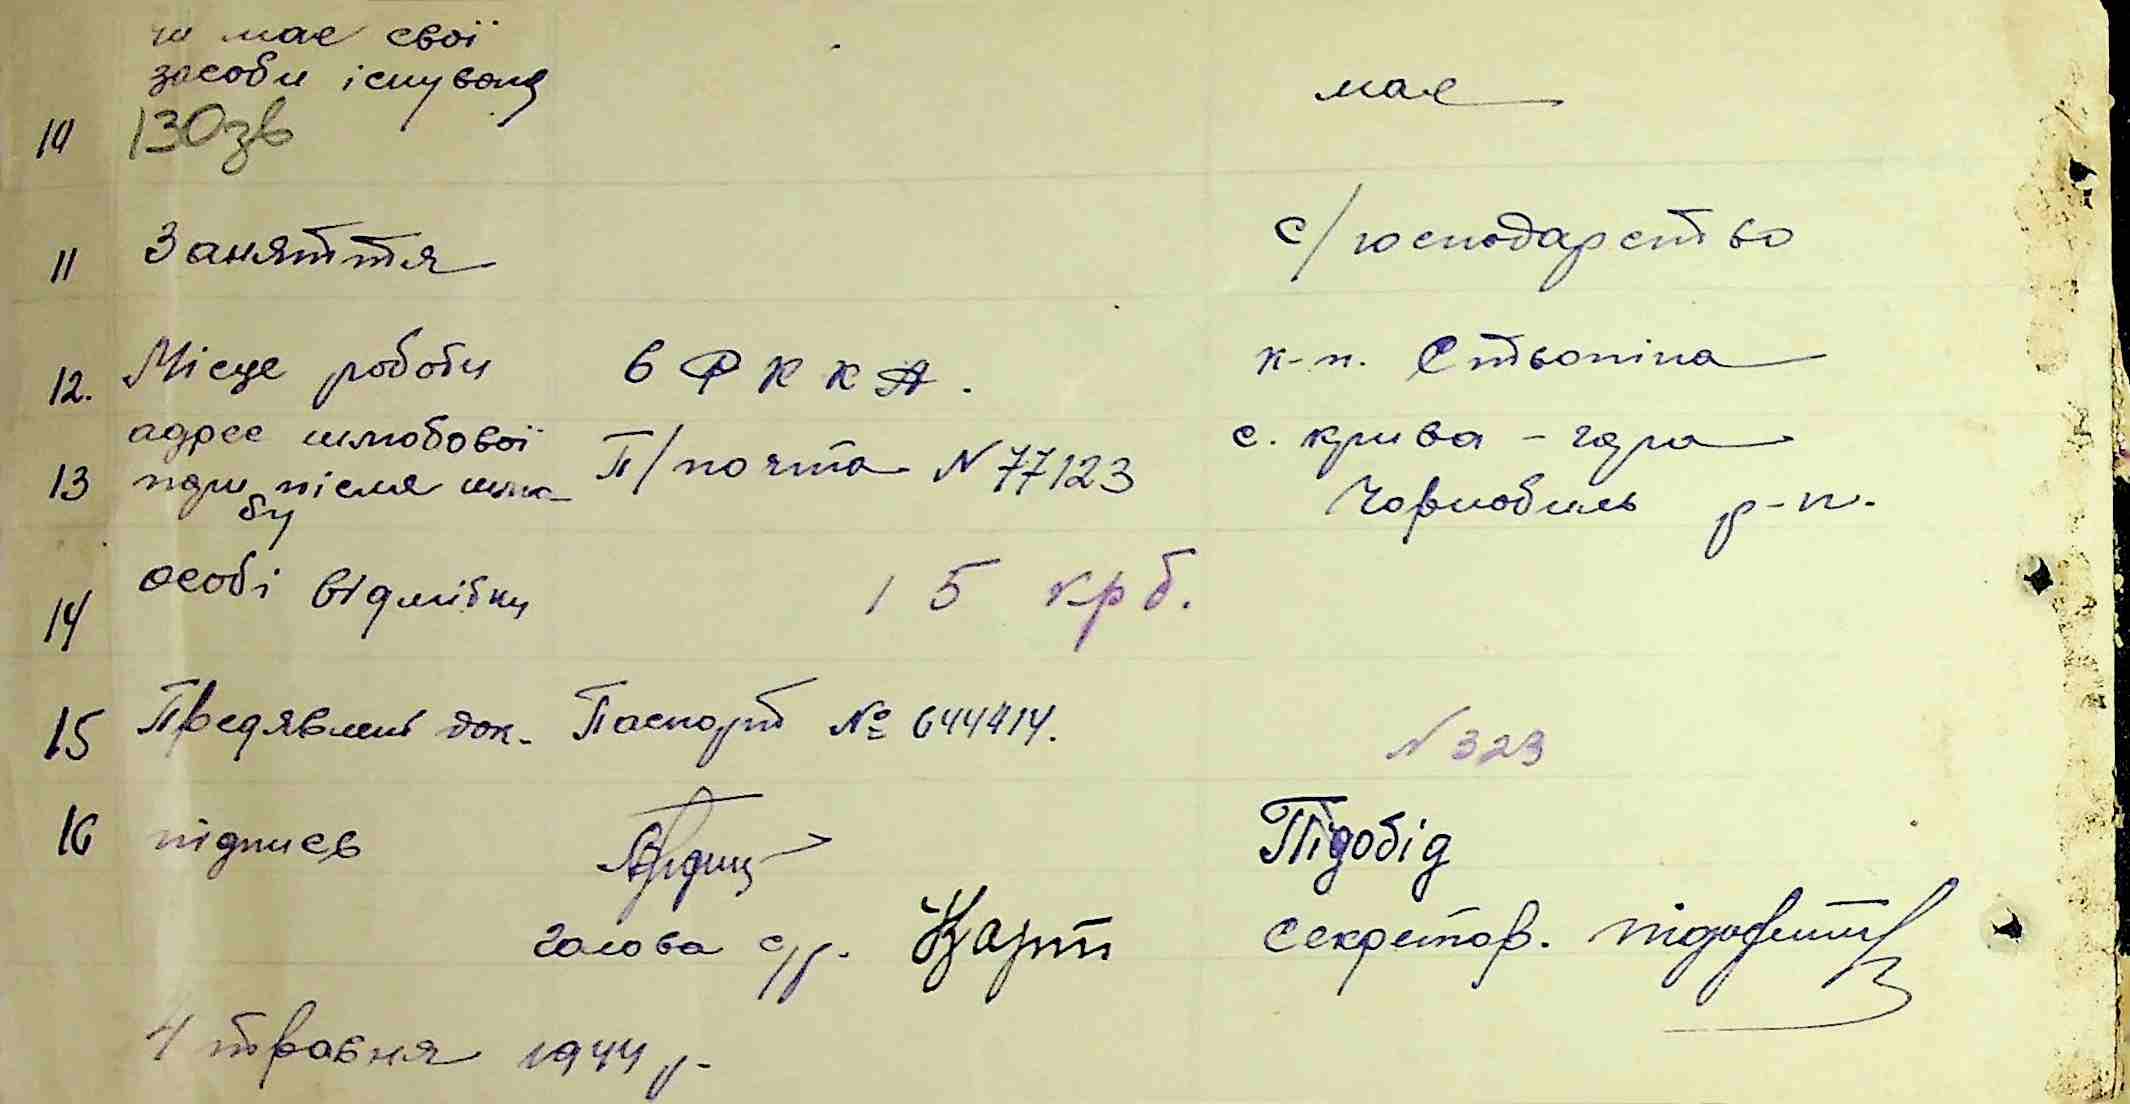 чи має свої
засоби існування
має
10 130зв
11 Заняття с/господарство
12. Місце роботи в РККА. к-п. Стьопіна
адрес шлюбової
13 пари після шлюбу П/почта № 77123 с. крива-гора
Чорнобиль р-н.
14 особі відмітки 15 крб.
15 Предявлені док. Паспорт № 644414. № 323
16 підписв Підобід
голова с/р. Секретар.
4 травня 1944 р.